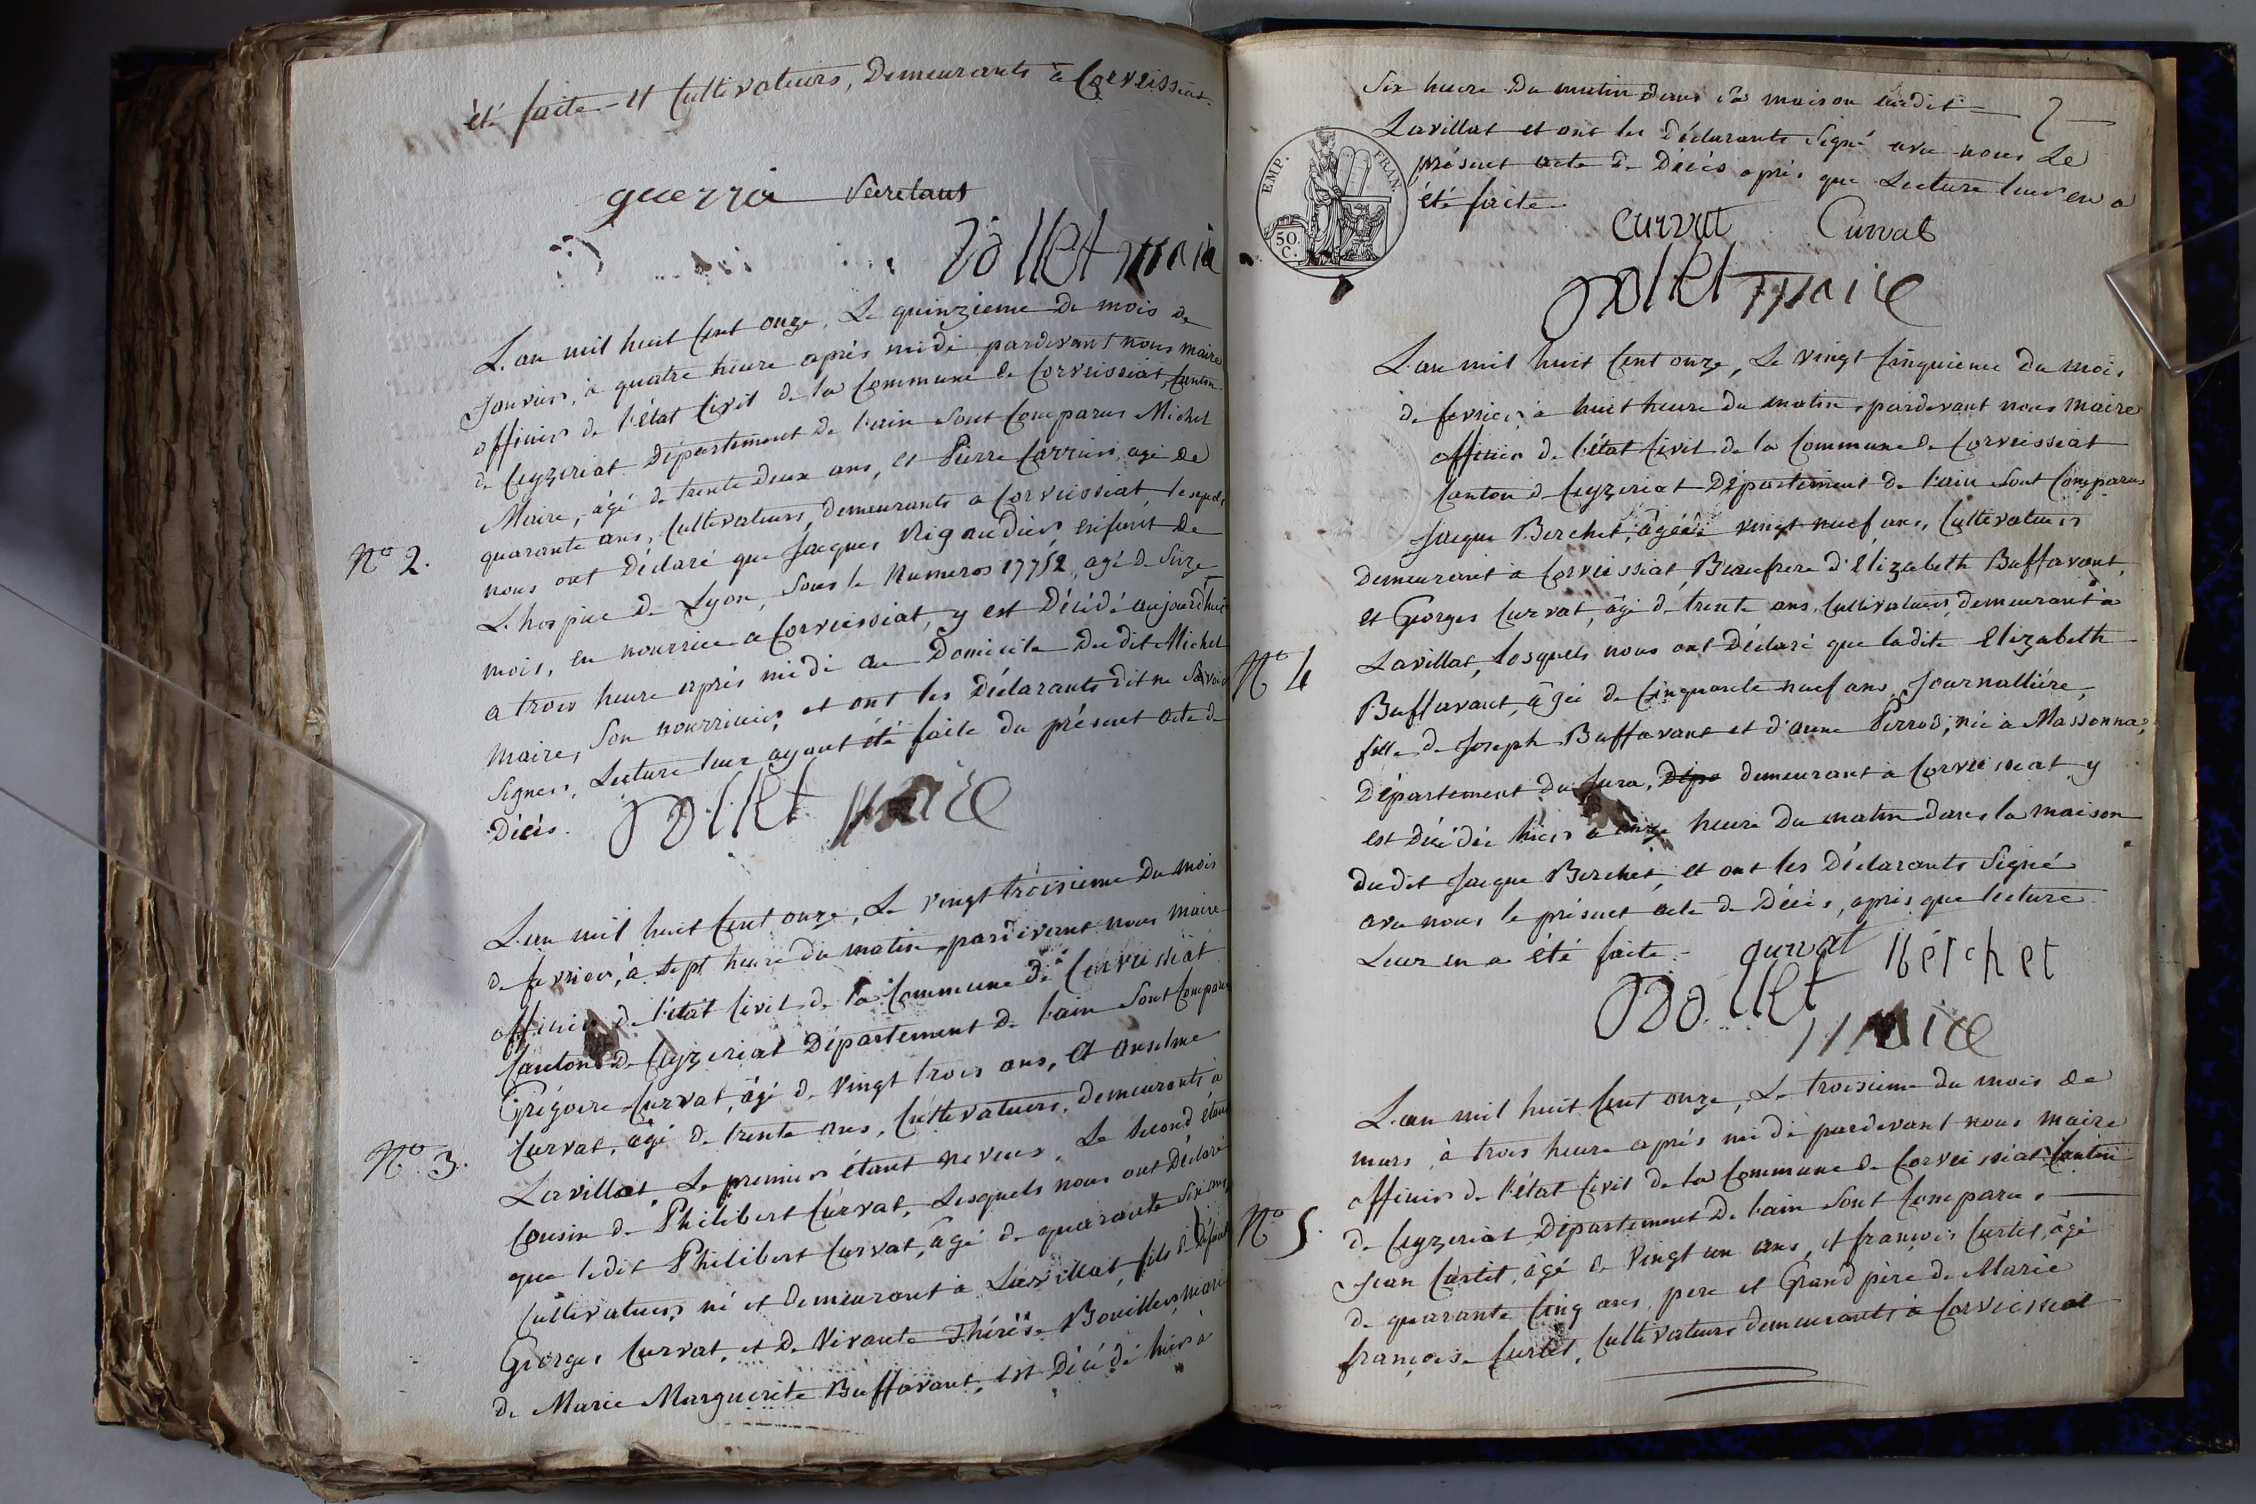 été faite - et Cultivateurs, Demeurants à Corveissiat.
guerria Secretant
Dollet maire
L'an mil huit Cent onze, Le quinzieme De mois de
Janvier, à quatre heure après midi pardevant nous maire
officier de l'état Civil de la Commune de Corveissiat, Canton
de Ceyzeriat Département de l'ain Sont Comparus Michel
Maire, âgé de trente Deux ans, et Pierre Carrier, agé de
quarante ans, Cultivateurs, demeurants a Corveissiat lesquels
nous ont Déclaré que Jacques Rigaudier, enfant de
N.o 2.
L'hospice de Lyon, Sous le Numeros 17752, agé de Seize
mois, en nourrice a Corveissiat, y est Décédé aujourd'hui
a trois heure après midi au Domicile Du dit Michel
Maire, Son nourricier, et ont les Déclarants dit ne Savoir
Signer, Lecture leur ayant été faite du présent acte de
Décès.
Dollet maire
L'an mil huit Cent onze, Le vingt troisieme Du mois
de fevrier, à Sept heure du matin, pardevant nous maire
officier de l'état Civil de la Commune de Corveissiat
Canton de Ceyzeriat Département de l'ain Sont Comparus
Grégoire Curvat, âgé de Vingt trois ans, et Anselme
Curvat, âgé de trente ans, Cultivateurs, demeurants à
N.o 3.
Lavillat, Le premier étant neveux, Le Second étant
Cousin de Philibert Curvat, Lesquels nous ont Déclaré
que ledit Philibert Curvat, âgé de quarante Six ans,
Cultivateur né et demeurant à Lavillat, fils de Défunt
Georges Curvat, et de Vivante Thérèse Bouillers, mari
de Marie Marguerite Buffavant, est Décédé hier à
Six heure Du matin dans sa maison audit
2
Lavillat et ont les Déclarants Signé avec nous Le
présent acte de Décès après que Lecture leur en a
été faite.
EMP. FRAN.
50. C.
curvat Curvat
Dollet maire
L'an mil huit Cent onze, Le vingt Cinquieme Du mois
de fevrier, à huit heure du matin, pardevant nous maire
officier de l'état Civil de la Commune de Corveissiat
Canton de Ceyzeriat Département de l'ain Sont Comparus
Jacque Berchet, âgé de vingt neuf ans, Cultivateurs
demeurant à Corveissiat, Beaufrere d'Elizabeth Buffavant,
et Georges Curvat, âgé de trente ans, Cultivateur, demeurant à
N.o 4
Lavillat, Lesquels nous ont Déclaré que ladite Elizabeth
Buffavant, âgée de Cinquante neuf ans, Journalliére,
fille de Joseph Buffavant et d'anne Perrod, née à Massonnas,
Département du Jura, Dépa demeurant à Corveissiat y
est Décédée hier à onze heure Du matin Dans la maison
dudit Jacque Berchet, et ont les Déclarants Signé
avec nous le présent acte de Décès, après que lecture
Leur en a été faite.
curvat Berchet
Dollet maire
L'an mil huit Cent onze, Le troisieme du mois de
mars, à trois heure après midi pardevant nous maire
officier de l'état Civil de la Commune de Corveissiat Canton
N.o 5.
de Ceyzeriat Département de l'ain Sont Comparu.
Jean Curtet, âgé de Vingt un ans, et françois Curtet, âgé
de quarante Cinq ans, pere et Grand père de Marie
françoise Curtet, Cultivateurs demeurants à Corveissiat